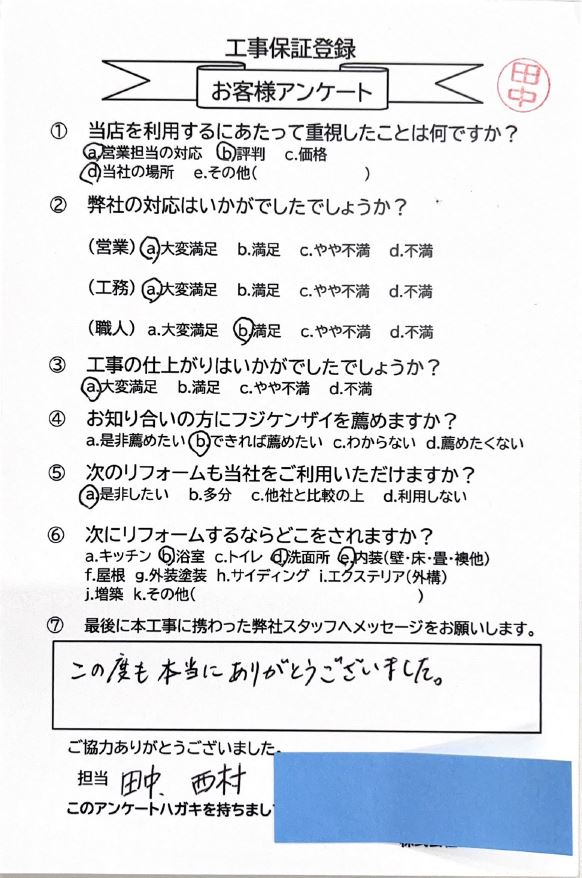 工事保証登録
お客様アンケート
田中
① 当店を利用するにあたって重視したことは何ですか？
a.営業担当の対応 b.評判 c.価格
d.当社の場所 e.その他( )
② 弊社の対応はいかがでしたでしょうか？
(営業) a.大変満足 b.満足 c.やや不満 d.不満
(工務) a.大変満足 b.満足 c.やや不満 d.不満
(職人) a.大変満足 b.満足 c.やや不満 d.不満
③ 工事の仕上がりはいかがでしたでしょうか？
a.大変満足 b.満足 c.やや不満 d.不満
④ お知り合いの方にフジケンザイを薦めますか？
a.是非薦めたい b.できれば薦めたい c.わからない d.薦めたくない
⑤ 次のリフォームも当社をご利用いただけますか？
a.是非したい b.多分 c.他社と比較の上 d.利用しない
⑥ 次にリフォームするならどこをされますか？
a.キッチン b.浴室 c.トイレ d.洗面所 e.内装(壁・床・畳・襖他)
f.屋根 g.外装塗装 h.サイディング i.エクステリア(外構)
j.増築 k.その他( )
⑦ 最後に本工事に携わった弊社スタッフへメッセージをお願いします。
この度も本当にありがとうございました。
ご協力ありがとうございました。
担当 田中、西村
このアンケートハガキを持ちまし